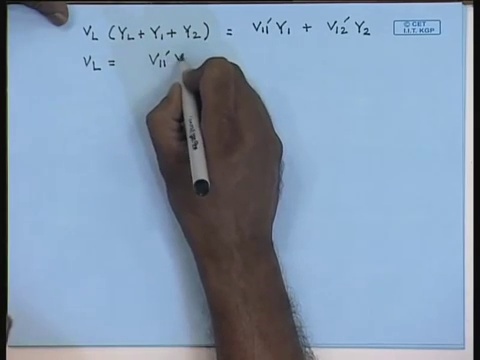 V_L (Y_L + Y_1 + Y_2) = V_11' Y_1 + V_12' Y_2
© CET
I.I.T. KGP
V_L = V_11'